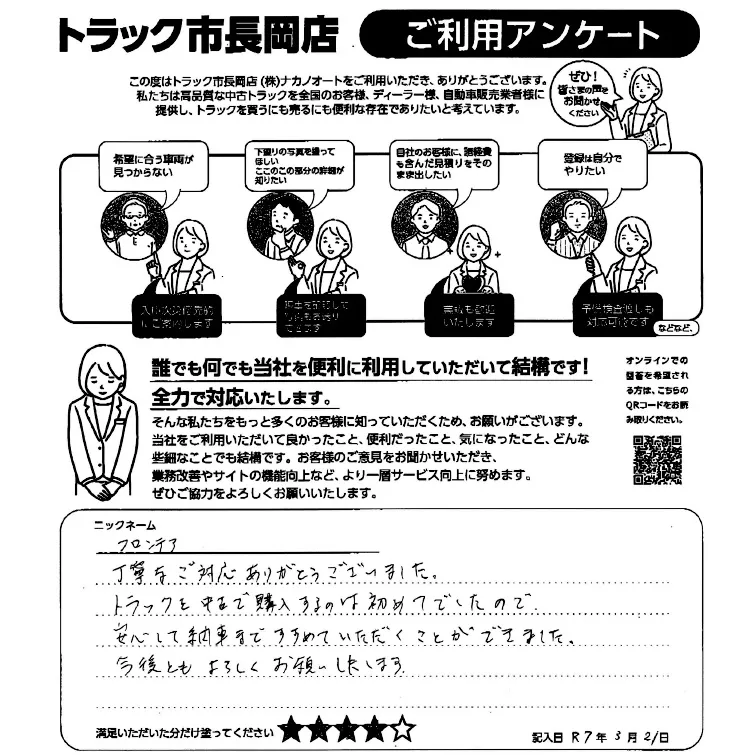 トラック市長岡店
ご利用アンケート
この度はトラック市長岡店(株)ナカノオートをご利用いただき、ありがとうございます。
私たちは高品質な中古トラックを全国のお客様、ディーラー様、自動車販売業者様に
提供し、トラックを買うにも売るにも便利な存在でありたいと考えています。
ぜひ!
皆さまの声を
お聞かせ
ください
希望に合う車両が
見つからない
下廻りの写真を撮って
ほしい
ここのこの部分の詳細が
知りたい
自社のお客様に、諸経費
も含んだ見積りをその
まま出したい
登録は自分で
やりたい
にご案内します
できます
いたします
対応可能です
などなど、
誰でも何でも当社を便利に利用していただいて結構です!
全力で対応いたします。
そんな私たちをもっと多くのお客様に知っていただくため、お願いがございます。
当社をご利用いただいて良かったこと、便利だったこと、気になったこと、どんな
些細なことでも結構です。お客様のご意見をお聞かせいただき、
業務改善やサイトの機能向上など、より一層サービス向上に努めます。
ぜひご協力をよろしくお願いいたします。
オンラインでの
回答を希望され
る方は、こちらの
QRコードをお読
み取りください。
ニックネーム
フロンテア
丁寧なご対応ありがとうございました。
トラックを中古で購入するのは初めてでしたので
安心して納車まですすめていただくことができました。
今後ともよろしくお願いします
満足いただいた分だけ塗ってください ★★★★☆
記入日 R7年3月21日